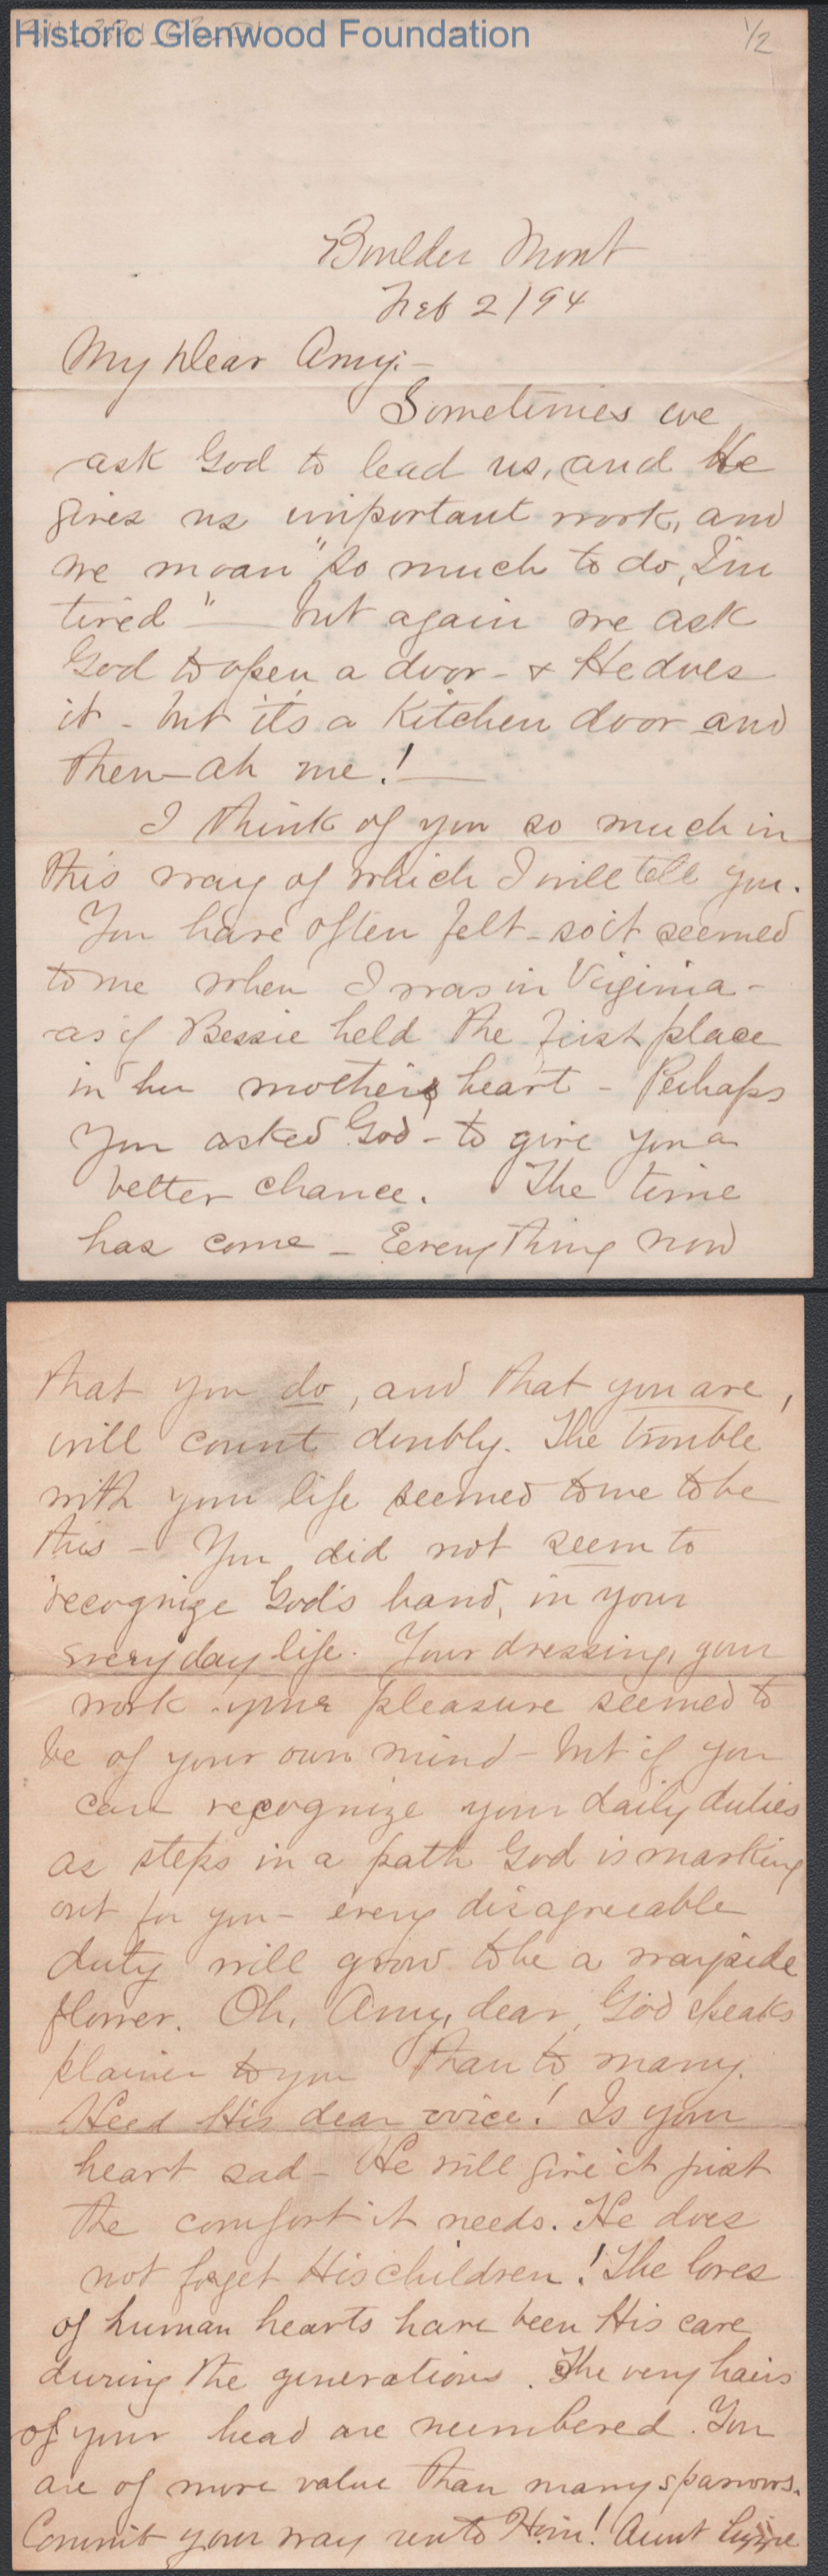 Historic Glenwood Foundation
1/2
Boulder Mont
Feb 2/94
My Dear Amy:-
Sometimes we
ask God to lead us, and He
gives us important work, and
we moan "so much to do, I'm
tired" — but again we ask
God to open a door - & He does
it - but it's a Kitchen door and
then - ah me! —
I think of you so much in
this way of which I will tell you.
You have often felt - so it seemed
to me when I was in Virginia -
as if Bessie held the first place
in her mother's heart - Perhaps
you asked God - to give you a
better chance. The time
has come - Everything now
that you do, and that you are,
will count doubly. The trouble
with your life seemed to me to be
this - You did not seem to
recognize God's hand, in your
everyday life. Your dressing, your
work your pleasure seemed to
be of your own mind - but if you
can recognize your daily duties
as steps in a path God is marking
out for you - every disagreeable
duty will grow to be a wayside
flower. Oh, Amy, dear, God speaks
plainer to you than to many.
Heed His dear voice! Is your
heart sad - He will give it just
the comfort it needs. He does
not forget His children! The loves
of human hearts have been His care
during the generations. The very hairs
of your head are numbered. You
are of more value than many sparrows.
Commit your way unto Him! Aunt